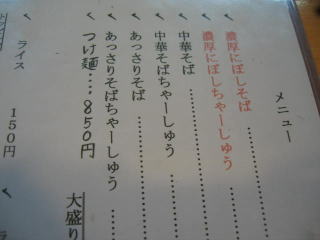 メニュー
く 濃厚にぼしそば…………
く 濃厚にぼしちゃーしゅう…
く 中華そば…………
く 中華そばちゃーしゅう……
く あっさりそば…………
く あっさりそばちゃーしゅう…
く つけ麺‥‥850円
大盛り
く ライス 150円
く